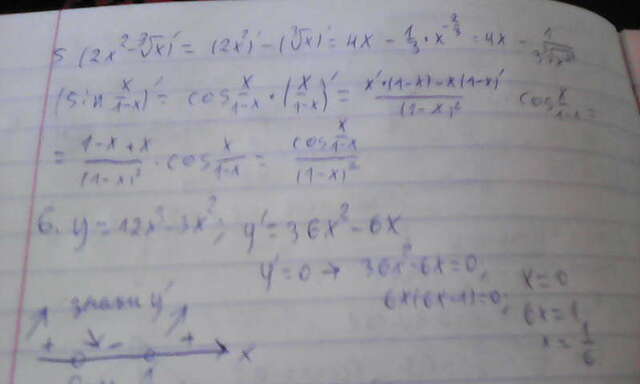 5 (2x²-∛x)' = (2x²)' - (∛x)' = 4x - 1/3 · x^(-2/3) = 4x - 1/(3∛x²)
(sin x/(1-x))' = cos x/(1-x) · (x/(1-x))' = (x'·(1-x)-x(1-x)')/(1-x)² · cos x/(1-x) =
= (1-x+x)/(1-x)² · cos x/(1-x) = (cos x/(1-x))/(1-x)²
6. y = 12x³-3x²; y' = 36x²-6x
y'=0 → 36x²-6x=0; x=0
6x(6x-1)=0; 6x=1
знаки y' x = 1/6
+ - + x